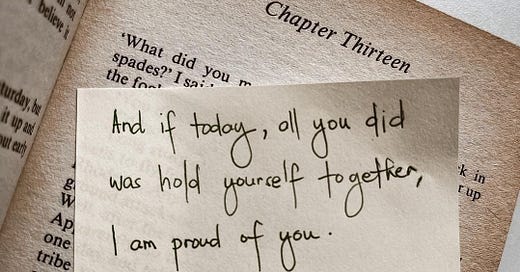 Chapter Thirteen
'What did you m
spades?' I said
the foo
believe it
turday, but
it up and
out early
And if today, all you did
was hold yourself together,
I am proud of you.
k in
r up
W
Ap
one
tribe